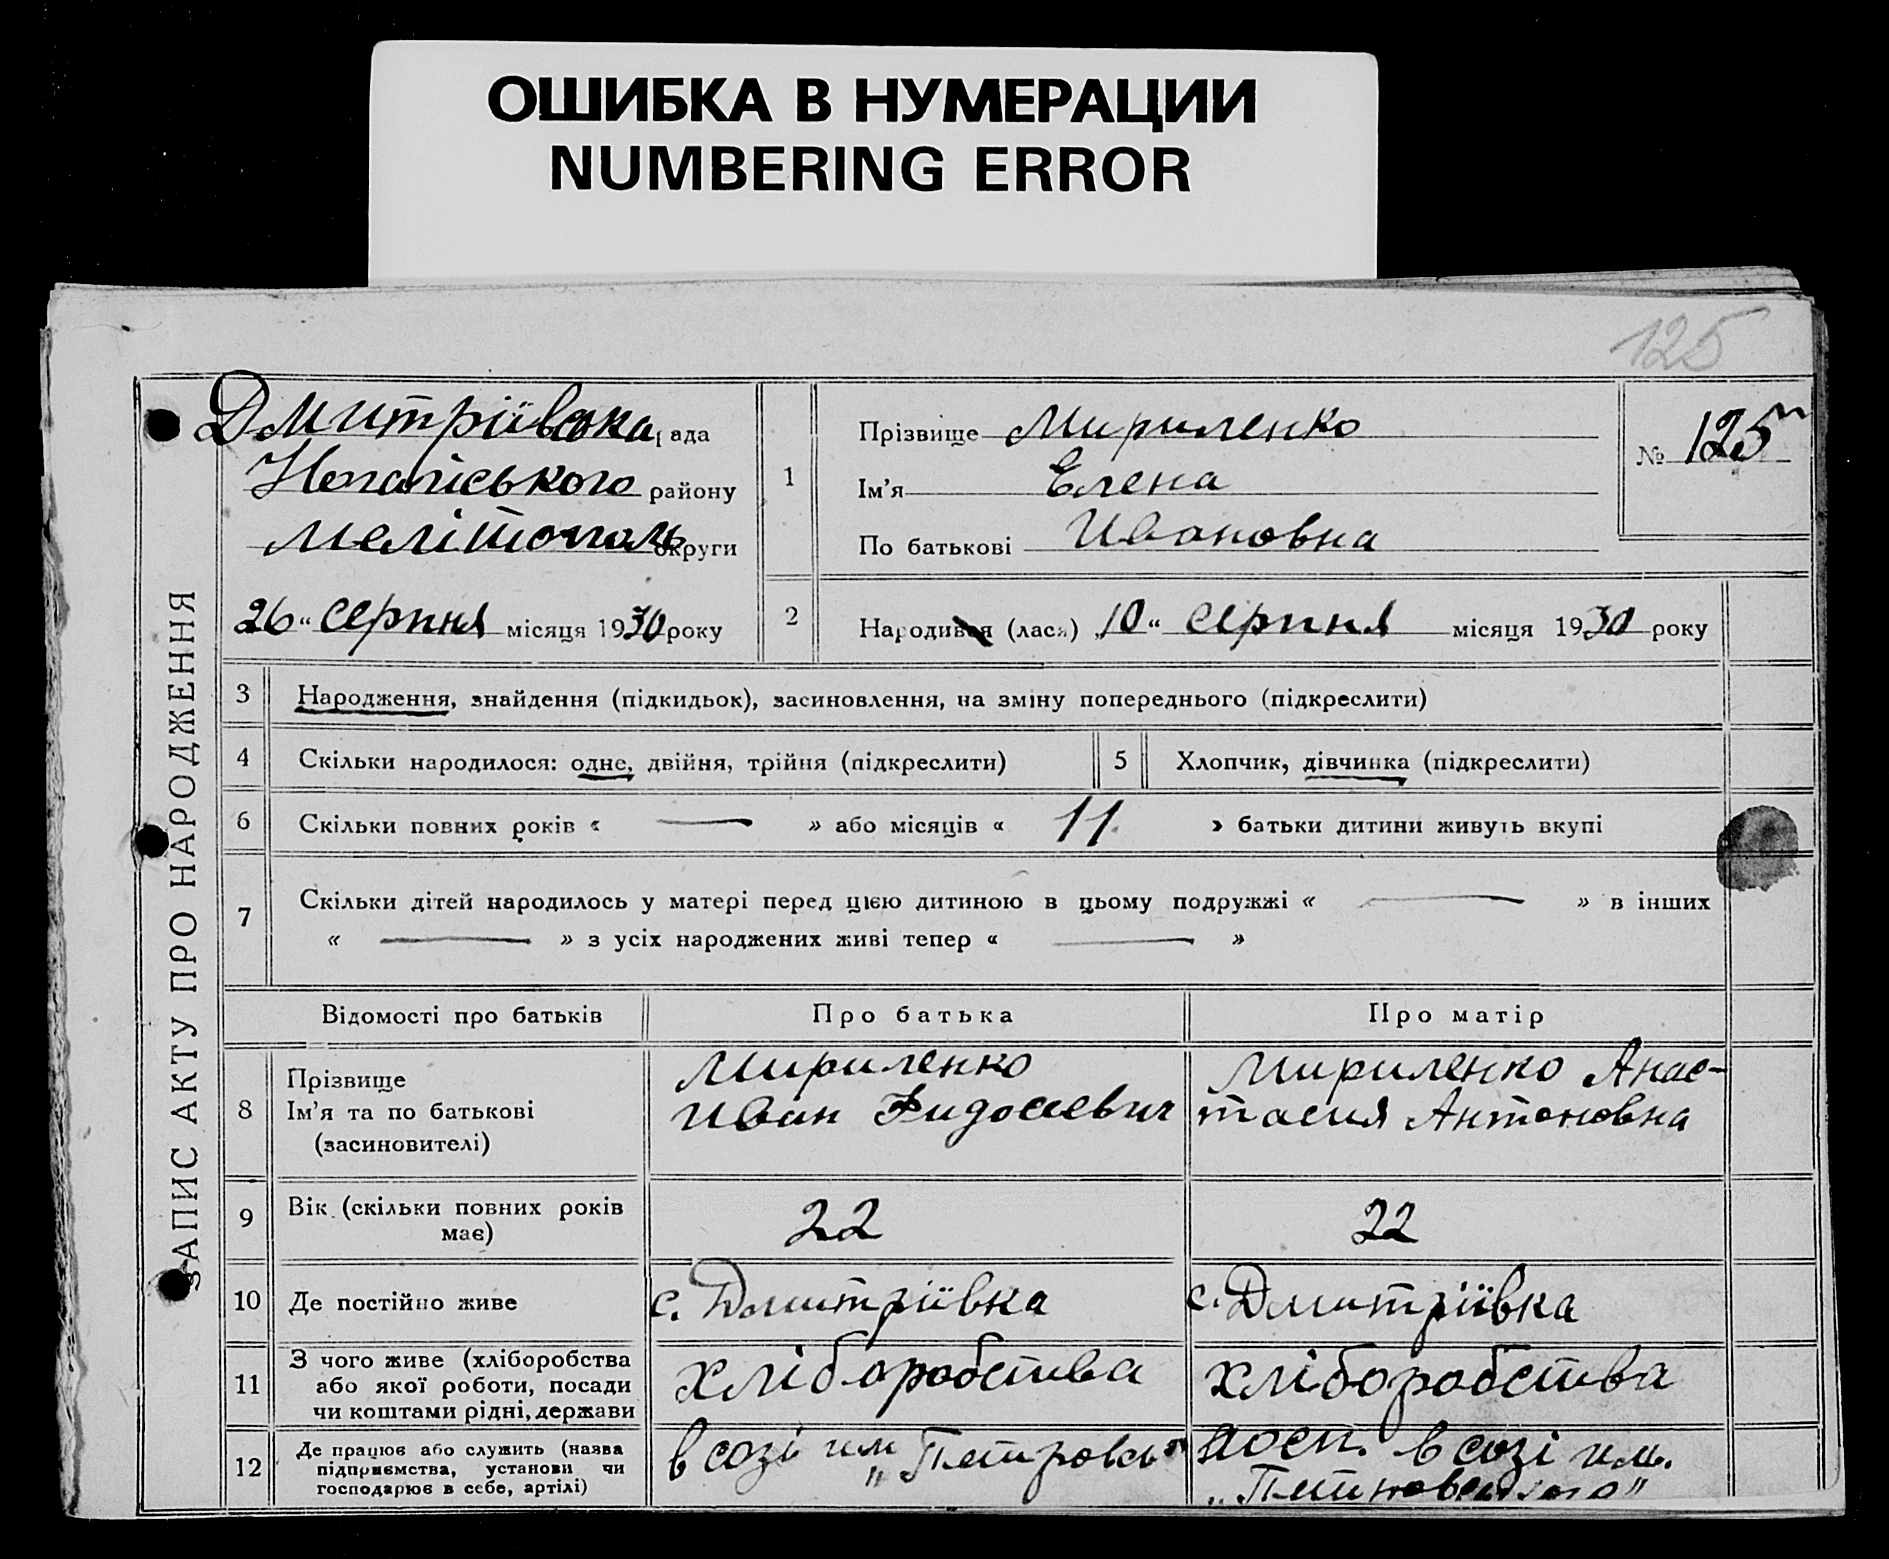 ОШИБКА В НУМЕРАЦИИ
NUMBERING ERROR
125
ЗАПИС АКТУ ПРО НАРОДЖЕННЯ
Дмитріївська рада
Ногайського району
Мелітополь округи
26 "серпня місяця 1930 року
1
Прізвище Мириленко
Ім'я Елена
По батькові Ивановна
№ 125
2
Народився (лася) „10" серпня місяця 1930 року
3 Народження, знайдення (підкидьок), засиновлення, на зміну попереднього (підкреслити)
4 Скільки народилося: одне, двійня, трійня (підкреслити) 5 Хлопчик, дівчинка (підкреслити)
6 Скільки повних років « — » або місяців « 11 » батьки дитини живуть вкупі
7 Скільки дітей народилось у матері перед цією дитиною в цьому подружжі « — » в інших
« — » з усіх народжених живі тепер « — »
Відомості про батьків Про батька Про матір
8 Прізвище
Ім'я та по батькові
(засиновителі)
Мириленко
Иван Фидосиевич
Мириленко Анас-
тасия Антоновна
9 Вік (скільки повних років
має)
22
22
10 Де постійно живе с. Дмитріївка с. Дмитріївка
11 З чого живе (хліборобства
або якої роботи, посади
чи коштами рідні, держави
хліборобства
хліборобства
12 Де працює або служить (назва
підприємства, установи чи
господарює в себе, артілі)
в созі им
„Петровсь
в созі им.
„Петровського"